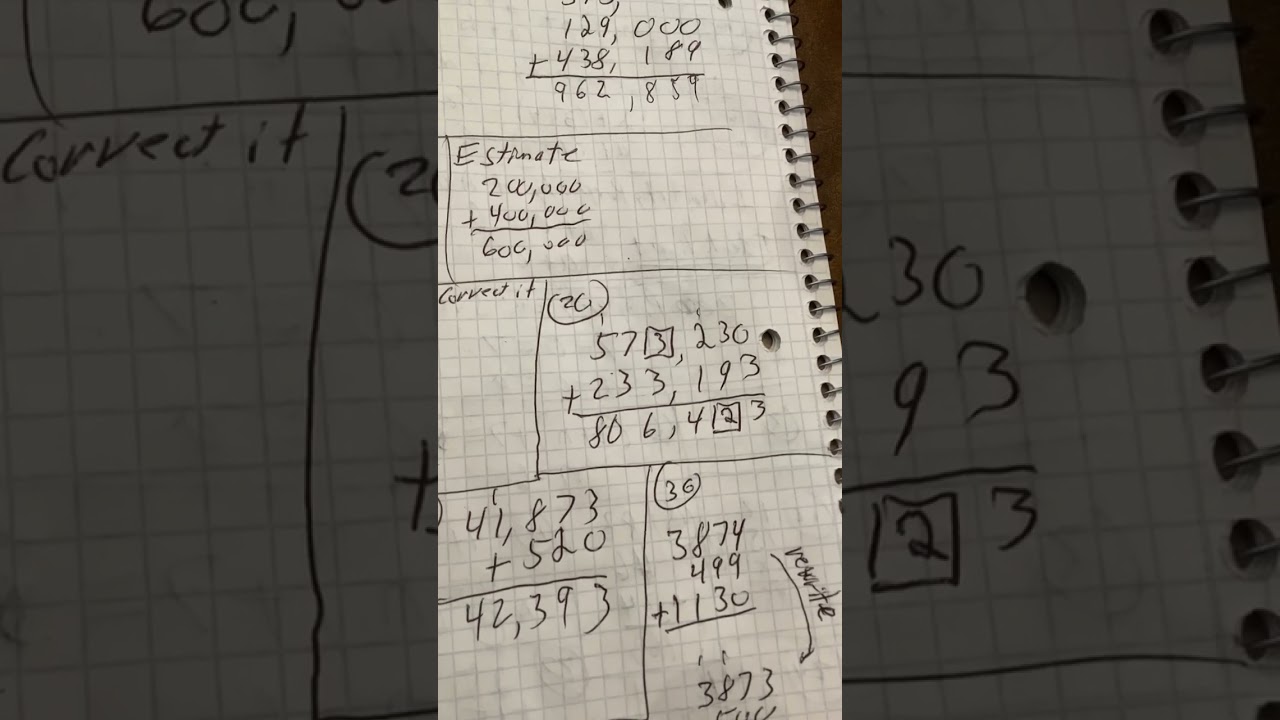 129,000
+438,189
962,859
Estimate
200,000
+400,000
600,000
Correct it
20
1 1
573,230
+233,193
806,423
1
41,873
+520
42,393
36
3874
499
+1130
rewrite
1 1
3873